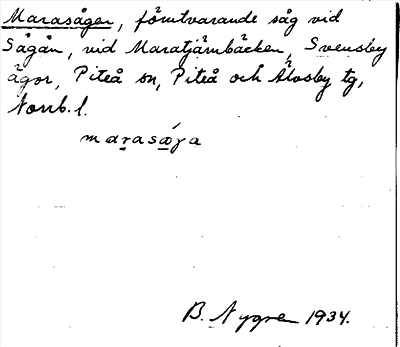 Marasågen, förutvarande såg vid
Sågån, vid Maratjärnbäcken, Svensby
ägor, Piteå sn, Piteå och Älvsby tg,
Norrb. l.
marasǿγa
B. Nygren 1934.